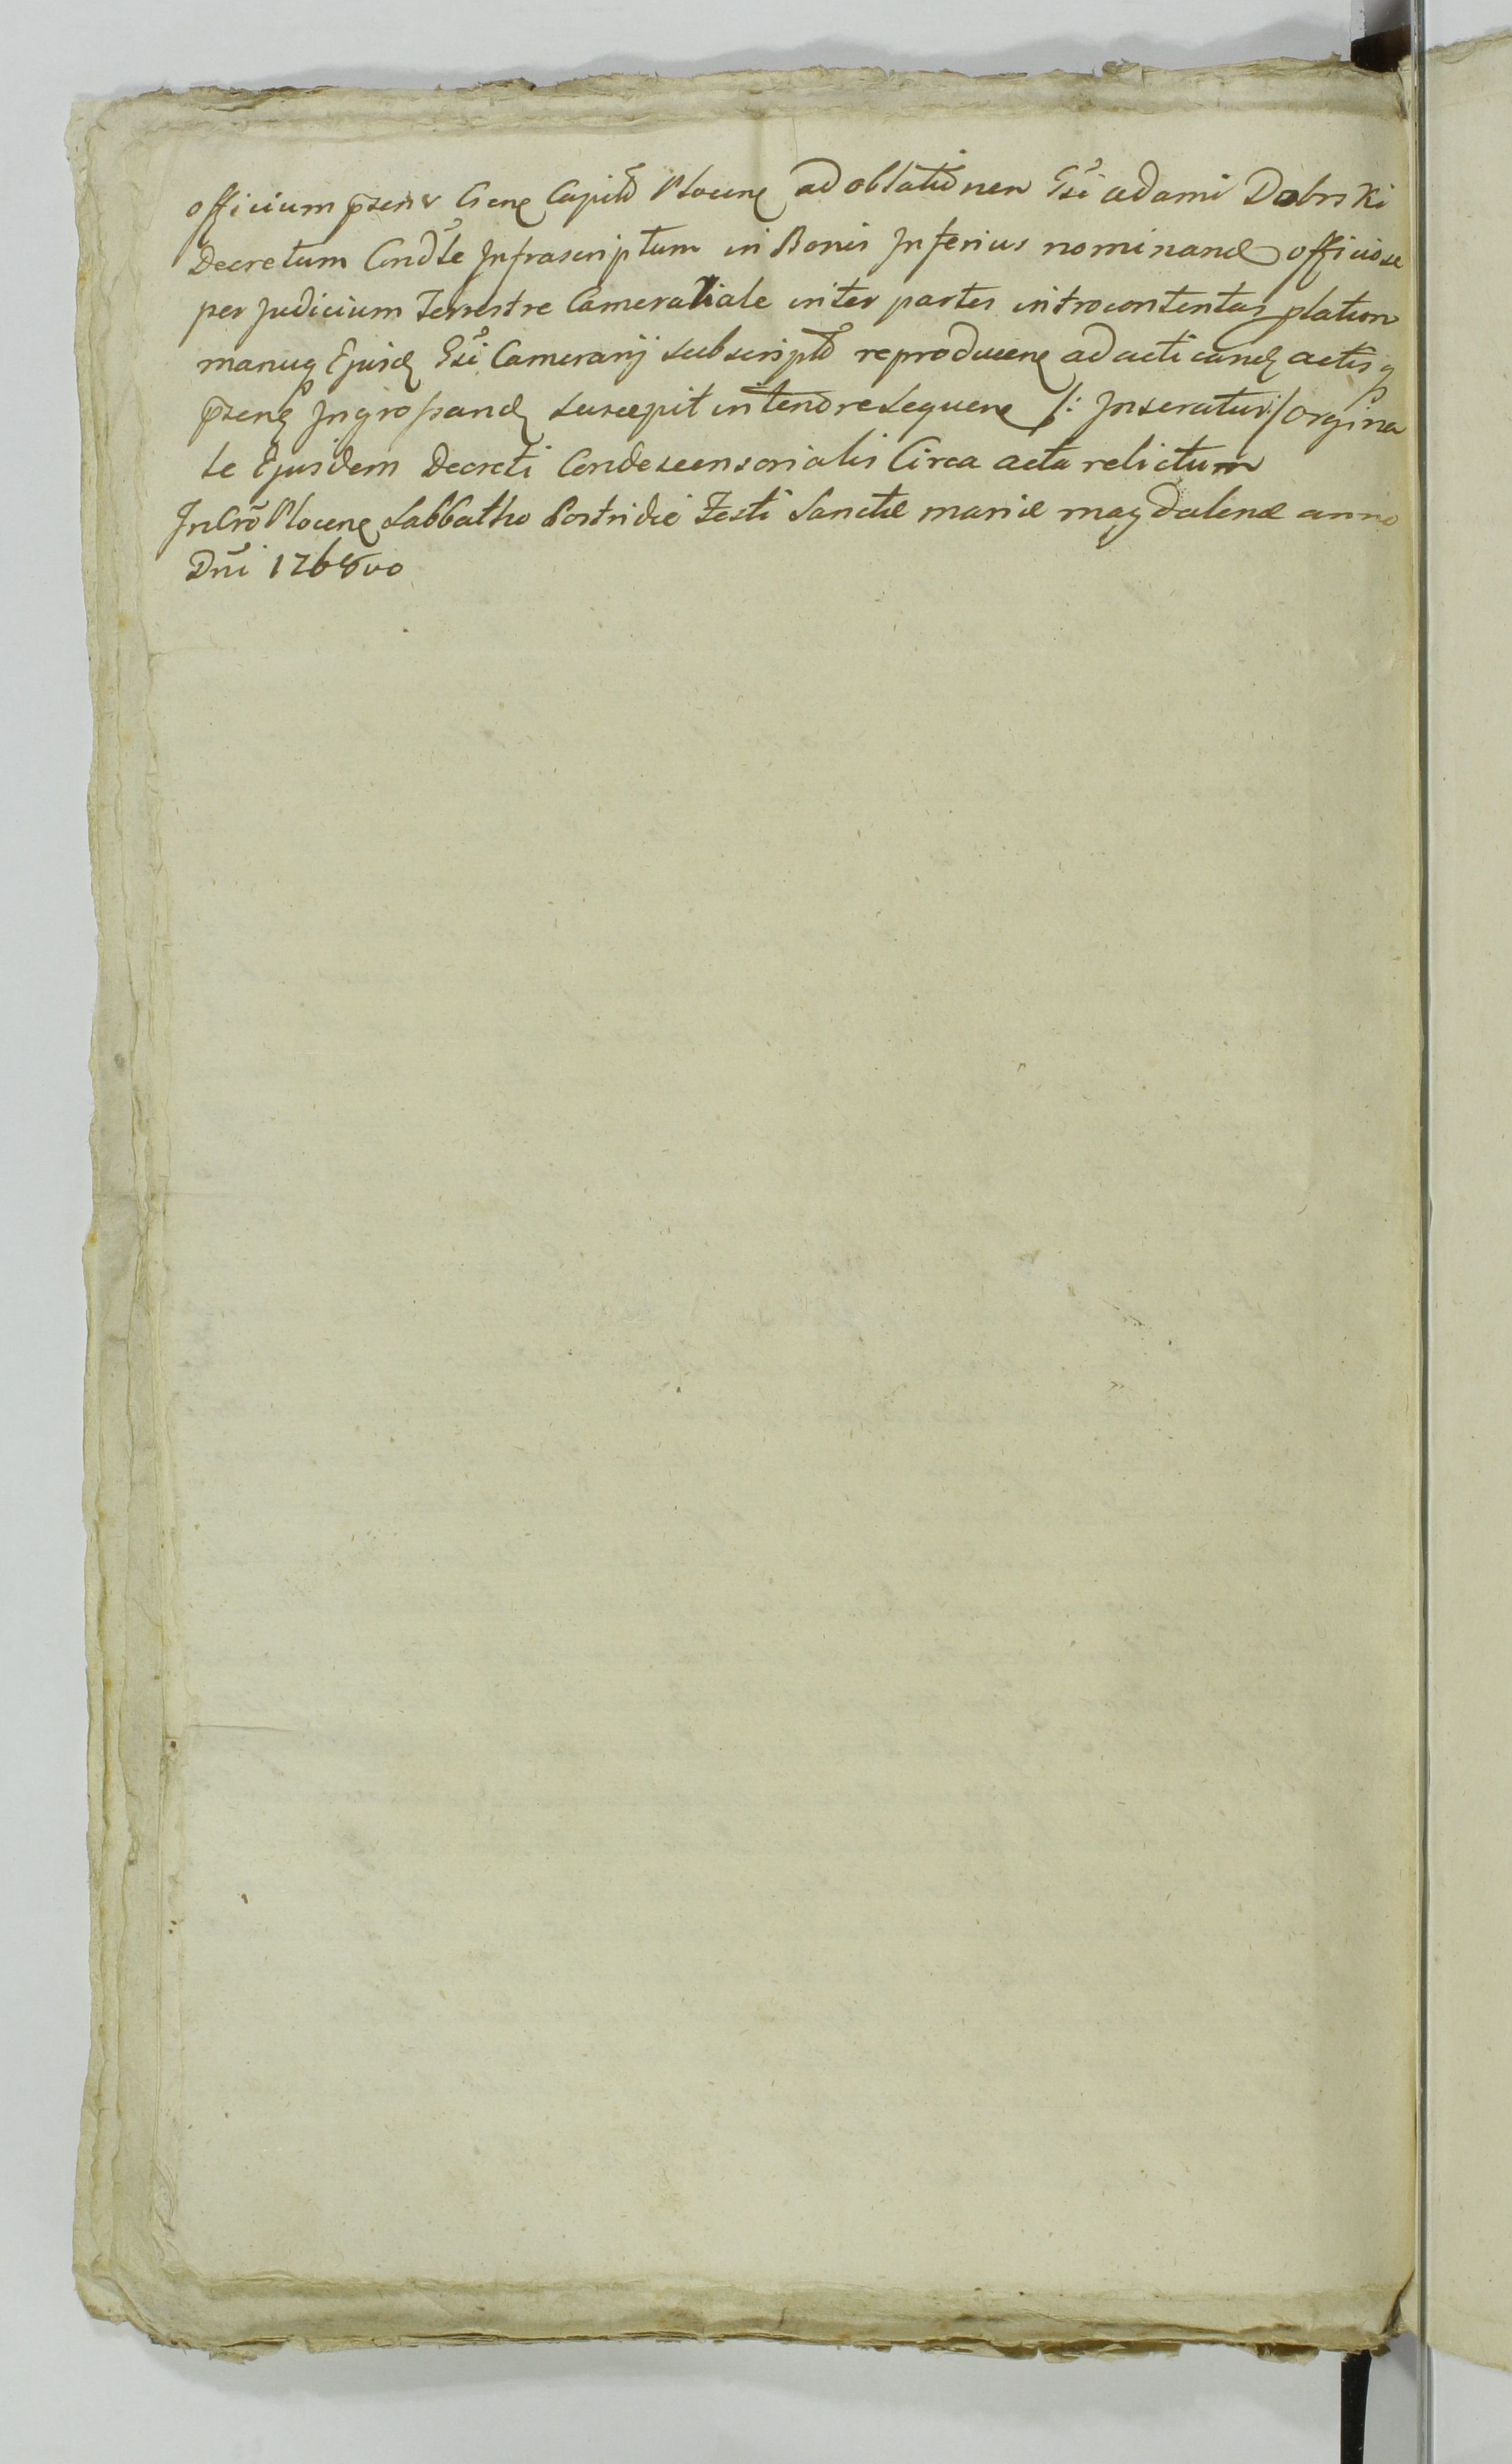 officium prźens Gene Capitõ Plocene ad oblatiõnem Gsi adami Dobrski
Decretum Condte Infrascriptum in Bonis Inferius nominand officiose
per Judicium Terrestre Cameratiale inter partes introcontentas platum
manuq Ejusd Gsi Camerarij subscriptõ reproducene ad acticand actisq
przene Ingrossand suscepit in tenõre sequene /: Inseratur :/ orgina
le Ejusdem Decreti Condescensorialis Circa acta relictum
In Crõ Plocene Sabbatho Postridie Festi Sanctæ mariæ magdalenæ anno
Dñi 1768vo